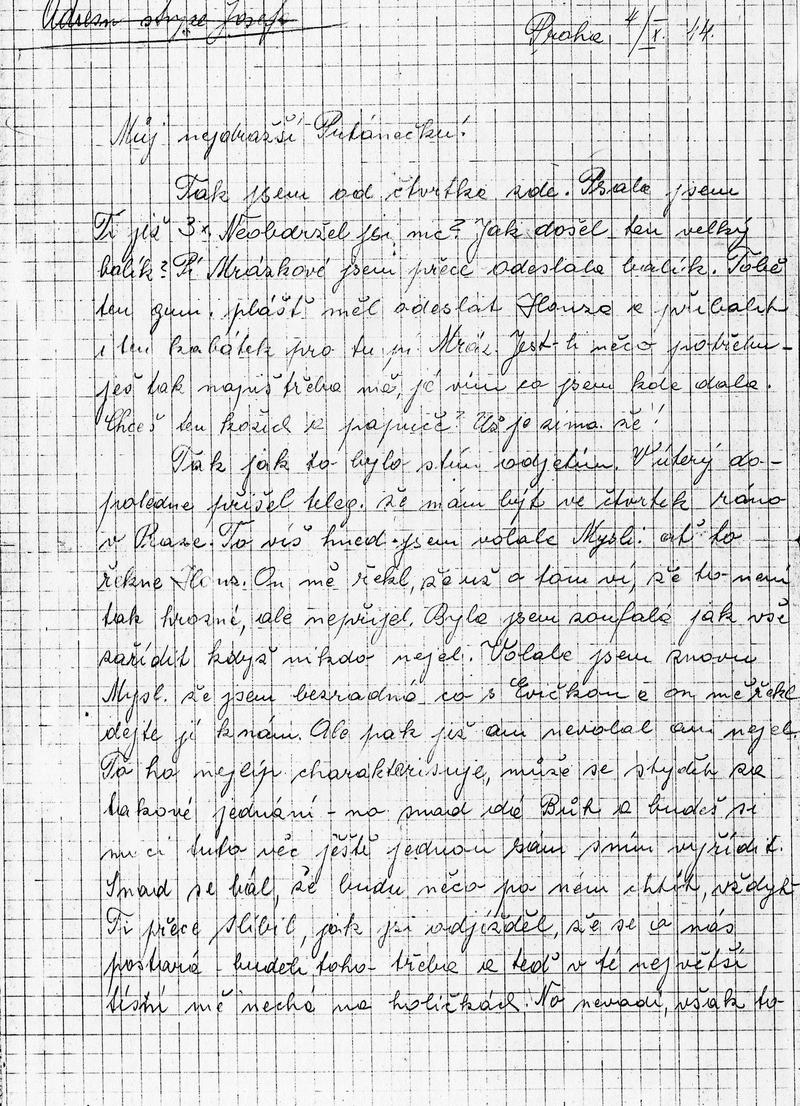 Adresa strýce Josefa
Praha, 4/IX. 44.
Můj nejdražší Puťánečku!
Tak jsem od čtvrtka zde. Psala jsem
Ti již 3x. Neobdržel jsi nic? Jak došel ten velký
balík? Pí Mrázkové jsem přece odeslala balík. Tobě
ten gum. plášť měl odeslat Honza a přibalit
i ten kabátek pro tu pí Mráz. Jest-li něco potřebu-
ješ tak napiš třeba mě, já vím co jsem kde dala.
Chceš ten kožich a papuče? Už je zima že!
Tak jak to bylo s tím odjetím. V úterý do-
poledne přišel teleg. že mám být ve čtvrtek ráno
v Praze. To víš hned jsem volala Mysli. ať to
řekne Honz. On mě řekl, že už o tom ví, že to není
tak hrozné, ale nepřijel. Byla jsem zoufalá jak vše
zařídit když nikdo nejel. Volala jsem znovu
Mysl. že jsem bezradná co s Evičkou a on mě řekl
dejte ji k nám. Ale pak již ani nevolal ani nejel.
To ho nejlíp charakterisuje, může se stydět za
takové jednání - no snad dá Bůh a budeš si
moci tuto věc ještě jednou sám s ním vyřídit.
Snad se bál, že budu něco po něm chtít, vždyť
Ti přece slíbil, jak jsi odjížděl, že se o nás
postará - budeli toho třeba a teď v té největší
tísni mě nechá na holičkách. No nevadí, však to